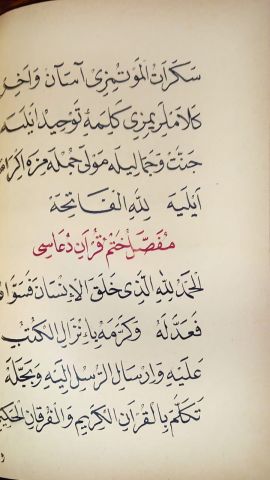 سَكَرَاتُ الْمَوْتِمِزِى آسَان وَآخِر
كَلَامْلَرِيمِزِى كَلِمَهٔ تَوْحِيدْ اَيْلَيَه
جَنَّتْ وَجَمَالِيلَه مَوْلَى جُمْلَه مِزَه اِكْرَام
اَيْلَيَه لِلّٰهِ الْفَاتِحَه
مُفَصَّلْ خَتْمِ قُرْآنْ دُعَاسِى
اَلْحَمْدُ لِلّٰهِ الَّذِى خَلَقَ الْاِنْسَانَ فَسَوَّاهُ
فَعَدَّلَهُ وَكَرَّمَهُ بِاِنْزَالِ الْكُتُبِ
عَلَيْهِ وَاِرْسَالِ الرُّسُلِ اِلَيْهِ وَبَجَّلَهُ
تَكَلَّمَ بِالْقُرْآنِ الْكَرِيمِ وَالْفُرْقَانِ الْحَكِيمِ